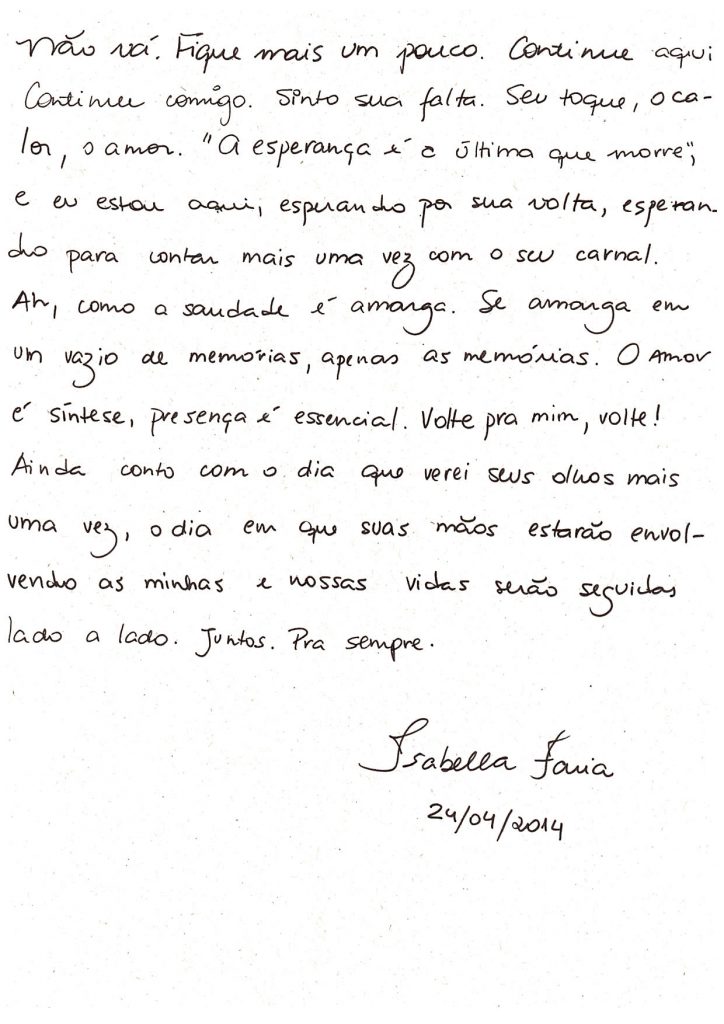 Não vá. Fique mais um pouco. Continue aqui
Continue comigo. Sinto sua falta. Seu toque, o ca-
lor, o amor. "A esperança é a última que morre",
e eu estou aqui, esperando por sua volta, esperan-
do para contar mais uma vez com o seu carnal.
Ah, como a saudade é amarga. Se amarga em
um vazio de memorias, apenas as memórias. O Amor
é síntese, presença é essencial. Volte pra mim, volte!
Ainda conto com o dia que verei seus olhos mais
uma vez, o dia em que suas mãos estarão envol-
vendo as minhas e nossas vidas serão seguidas
lado a lado. Juntos. Pra sempre.
Isabella Faria
24/04/2014